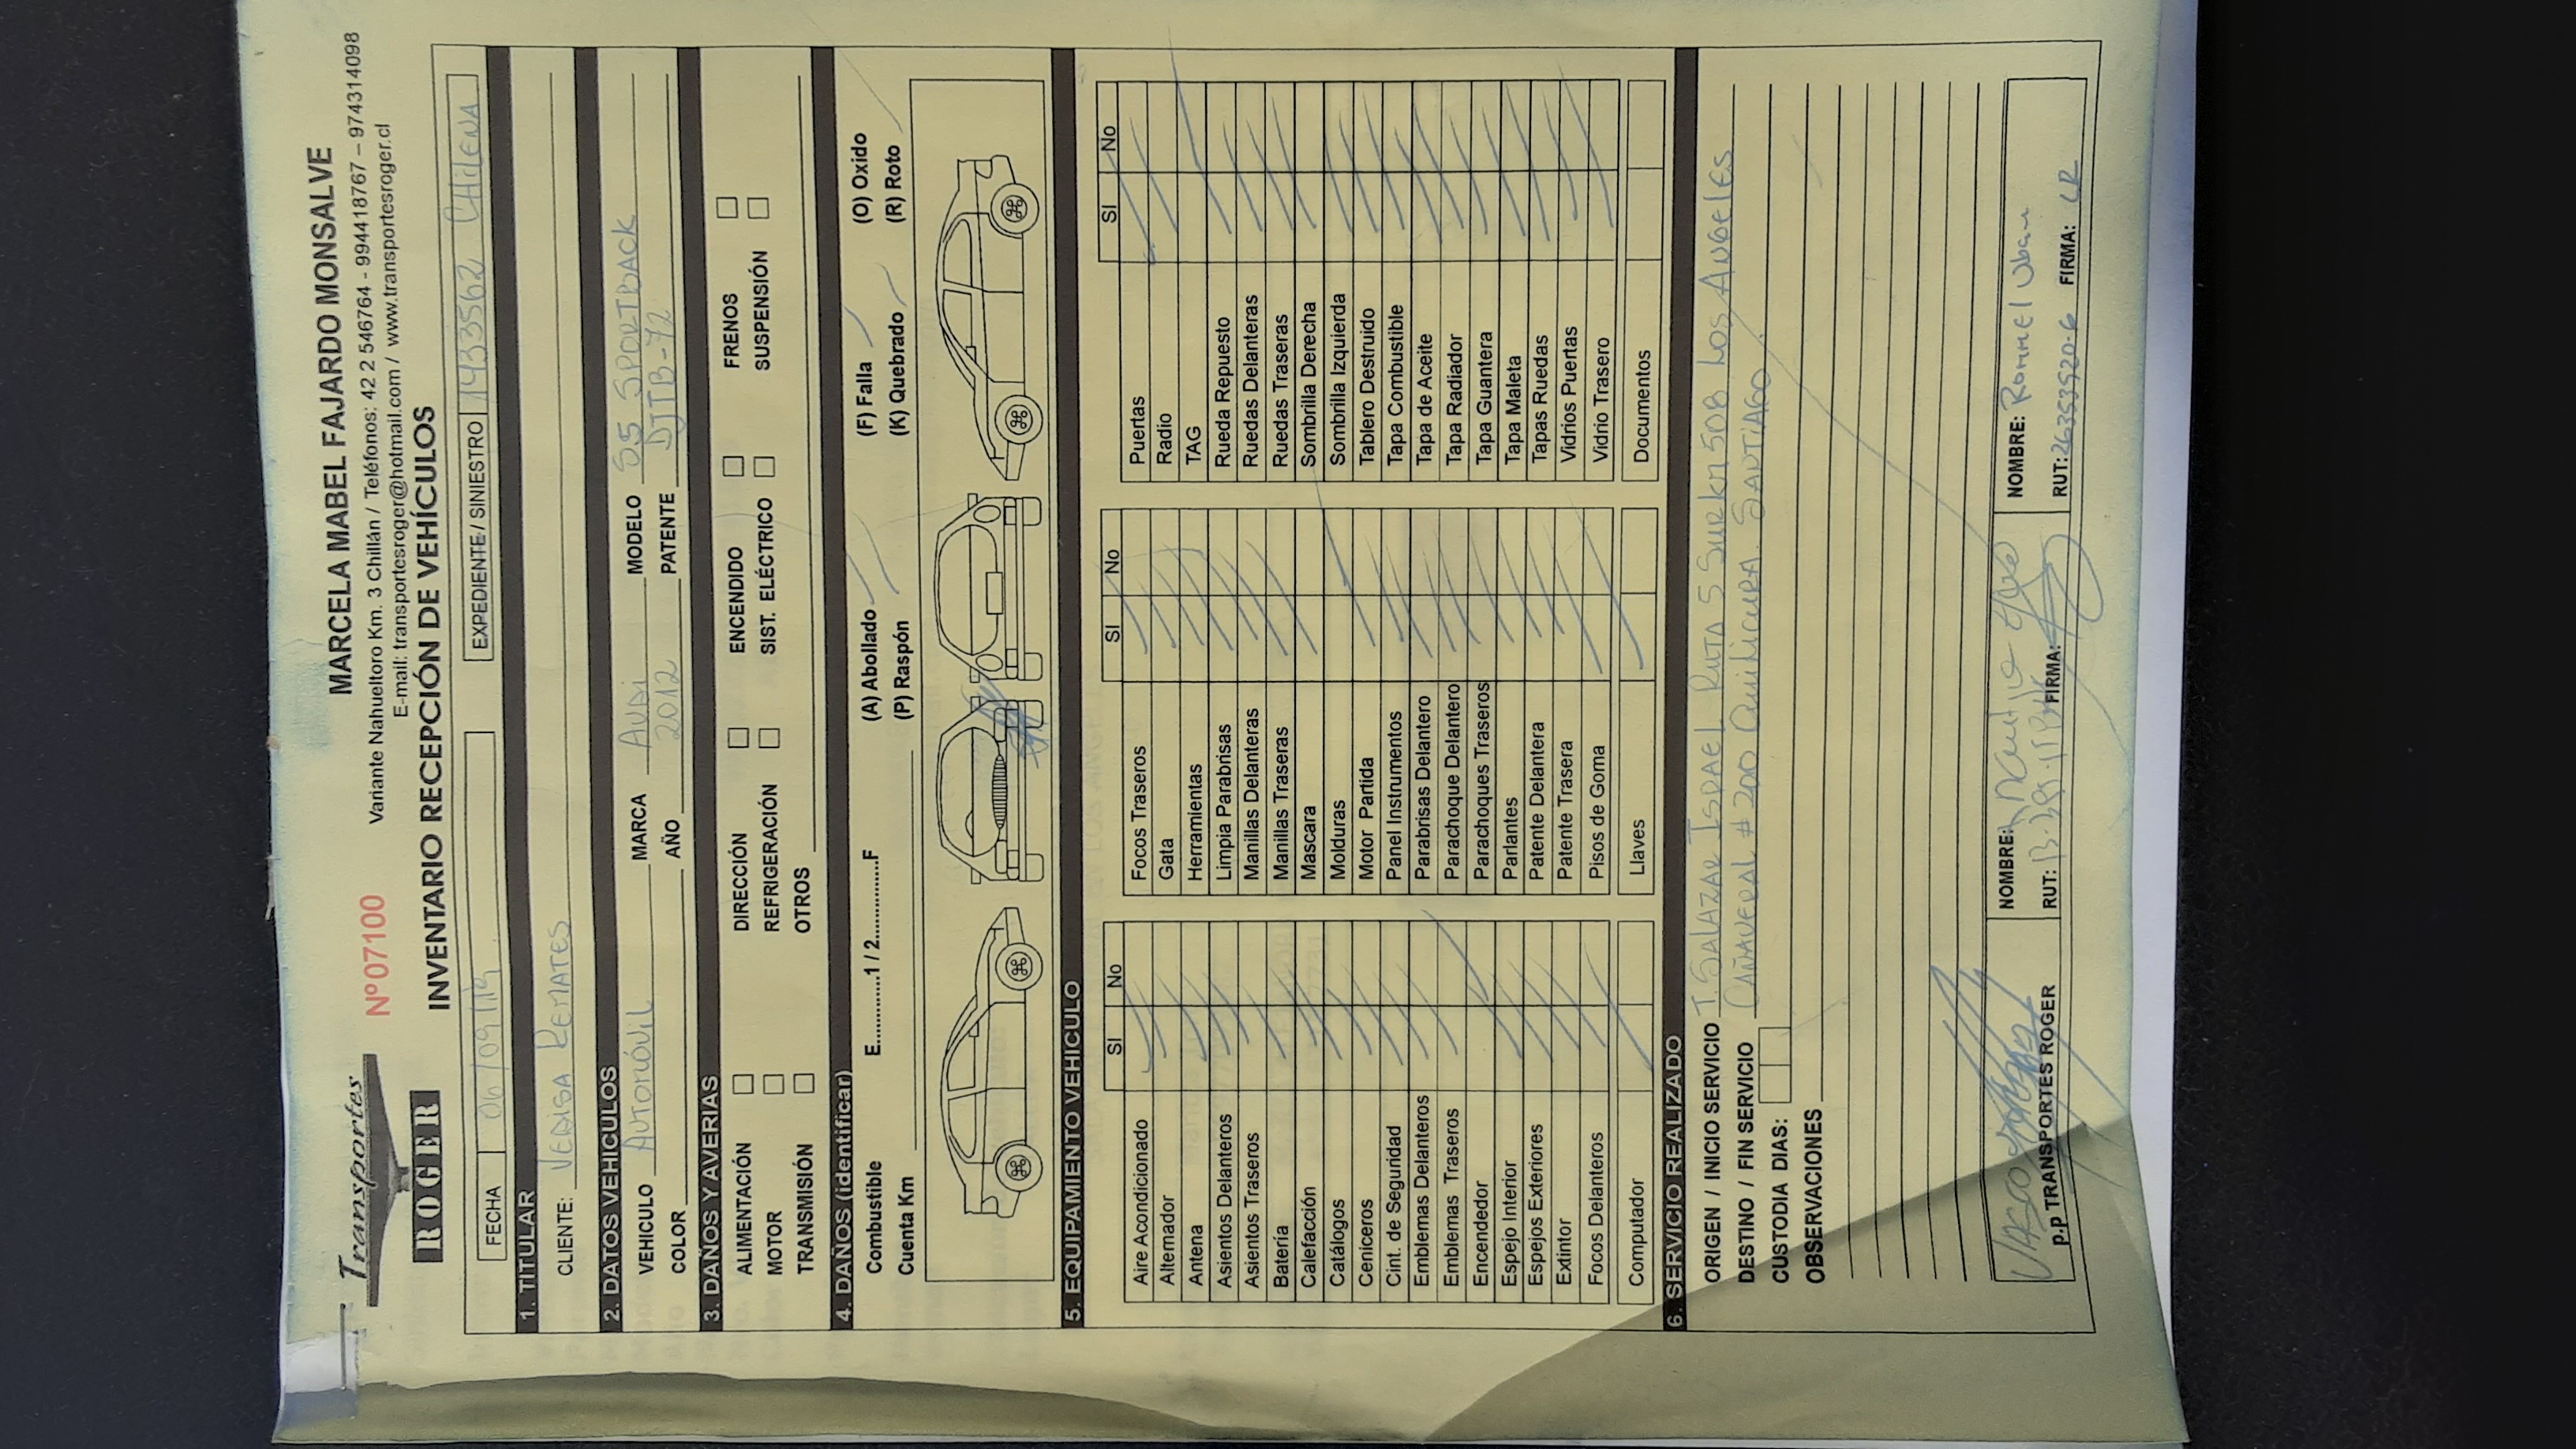 Transportes
ROGER
Nº 07100
MARCELA MABEL FAJARDO MONSALVE
Variante Nahueltoro Km. 3 Chillán / Teléfonos: 42 2 546764 - 994418767 – 974314098
E-mail: transportesroger@hotmail.com / www.transportesroger.cl
INVENTARIO RECEPCIÓN DE VEHÍCULOS
FECHA 06/09/19 EXPEDIENTE / SINIESTRO 1433562 CHILENA
1. TITULAR
CLIENTE: VEDISA REMATES
2. DATOS VEHICULOS
VEHICULO AUTOMÓVIL MARCA AUDI MODELO S5 SPORTBACK
COLOR AÑO 2012 PATENTE DJTB-72
3. DAÑOS Y AVERIAS
ALIMENTACIÓN DIRECCIÓN ENCENDIDO FRENOS
MOTOR REFRIGERACIÓN SIST. ELÉCTRICO SUSPENSIÓN
TRANSMISIÓN OTROS
4. DAÑOS (identificar)
Combustible E............1 / 2..............F (A) Abollado (F) Falla (O) Oxido
Cuenta Km (P) Raspón (K) Quebrado (R) Roto
5. EQUIPAMIENTO VEHICULO
SI No SI No SI No
Aire Acondicionado Focos Traseros Puertas
Alternador Gata Radio
Antena Herramientas TAG
Asientos Delanteros Limpia Parabrisas Rueda Repuesto
Asientos Traseros Manillas Delanteras Ruedas Delanteras
Batería Manillas Traseras Ruedas Traseras
Calefacción Mascara Sombrilla Derecha
Catálogos Molduras Sombrilla Izquierda
Ceniceros Motor Partida Tablero Destruido
Cint. de Seguridad Panel Instrumentos Tapa Combustible
Emblemas Delanteros Parabrisas Delantero Tapa de Aceite
Emblemas Traseros Parachoque Delantero Tapa Radiador
Encendedor Parachoques Traseros Tapa Guantera
Espejo Interior Parlantes Tapa Maleta
Espejos Exteriores Patente Delantera Tapas Ruedas
Extintor Patente Trasera Vidrios Puertas
Focos Delanteros Pisos de Goma Vidrio Trasero
Computador Llaves Documentos
6. SERVICIO REALIZADO
ORIGEN / INICIO SERVICIO T. SALAZAR ISRAEL RUTA 5 SUR KM 508 LOS ANGELES
DESTINO / FIN SERVICIO CAÑAVERAL # 200 QUILICURA. SANTIAGO
CUSTODIA DIAS:
OBSERVACIONES
p.p TRANSPORTES ROGER
NOMBRE:
RUT: FIRMA:
NOMBRE: Rommel
RUT: 26353920-6 FIRMA: